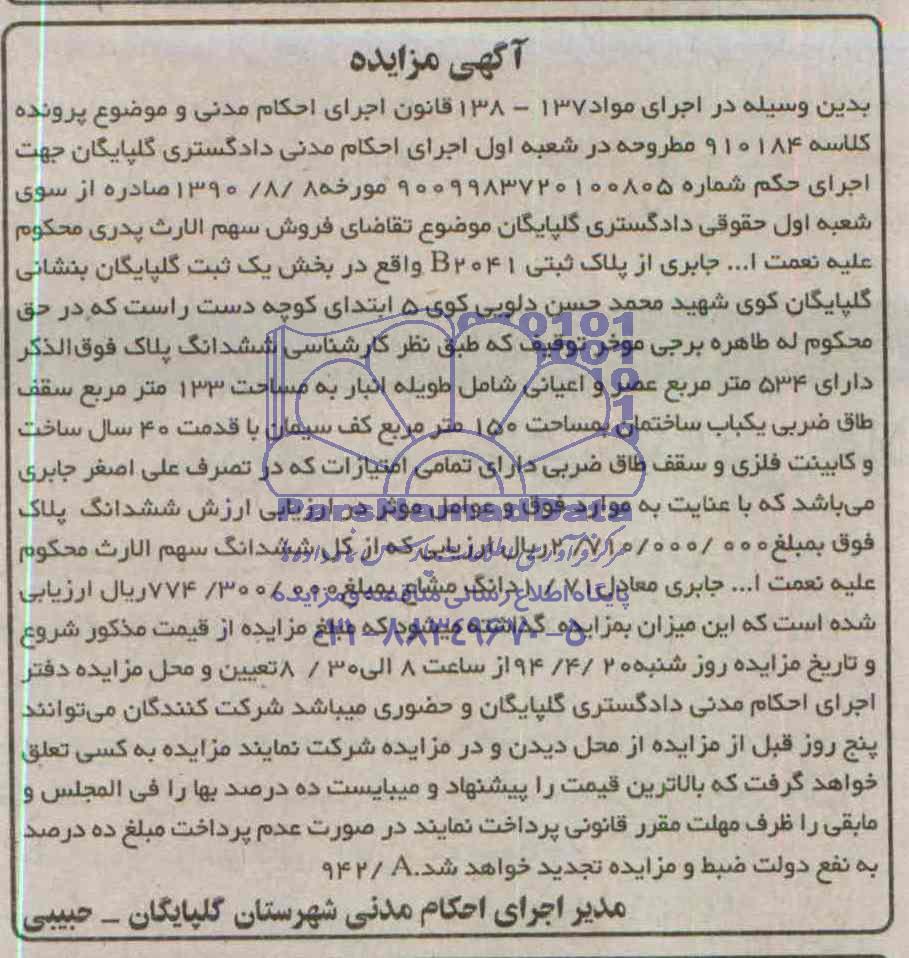 آگهی مزایده
بدین وسیله در اجرای مواد۱۳۷ - ۱۳۸قانون اجرای احکام مدنی و موضوع پرونده
کلاسه ۹۱۰۱۸۴ مطروحه در شعبه اول اجرای احکام مدنی دادگستری گلپایگان جهت
اجرای حکم شماره ۹۰۰۹۹۸۳۷۲۰۱۰۰۸۰۵ مورخه۸ /۸/ ۱۳۹۰صادره از سوی
شعبه اول حقوقی دادگستری گلپایگان موضوع تقاضای فروش سهم الارث پدری محکوم
علیه نعمت ا... جابری از پلاک ثبتی B۲۰۴۱ واقع در بخش یک ثبت گلپایگان بنشانی
گلپایگان کوی شهید محمد حسن دلویی کوی ۵ ابتدای کوچه دست راست که در حق
محکوم له طاهره برجی موخر توقیف که طبق نظر کارشناسی ششدانگ پلاک فوق‌الذکر
دارای ۵۳۴ متر مربع عصر و اعیانی شامل طویله انبار به مساحت ۱۳۳ متر مربع سقف
طاق ضربی یکباب ساختمان بمساحت ۱۵۰ متر مربع کف سیمان با قدمت ۴۰ سال ساخت
و کابینت فلزی و سقف طاق ضربی دارای تمامی امتیازات که در تصرف علی اصغر جابری
می‌باشد که با عنایت به موارد فوق و عوامل موثر در ارزیابی ارزش ششدانگ پلاک
فوق بمبلغ۰۰۰ /۲/۷۱۰/۰۰۰ریال ارزیابی که از کل ششدانگ سهم الارث محکوم
علیه نعمت ا... جابری معادل۷۱ / ۱دانگ مشاع بمبلغ۷۷۴ /۳۰۰/۰۰۰ریال ارزیابی
شده است که این میزان بمزایده گذاشته میشود که مبلغ مزایده از قیمت مذکور شروع
و تاریخ مزایده روز شنبه۲۰ /۴/ ۹۴از ساعت ۸ الی۳۰ / ۸تعیین و محل مزایده دفتر
اجرای احکام مدنی دادگستری گلپایگان و حضوری میباشد شرکت کنندگان می‌توانند
پنج روز قبل از مزایده از محل دیدن و در مزایده شرکت نمایند مزایده به کسی تعلق
خواهد گرفت که بالاترین قیمت را پیشنهاد و میبایست ده درصد بها را فی المجلس و
مابقی را ظرف مهلت مقرر قانونی پرداخت نمایند در صورت عدم پرداخت مبلغ ده درصد
به نفع دولت ضبط و مزایده تجدید خواهد شد.A /۹۴۲
مدیر اجرای احکام مدنی شهرستان گلپایگان _ حبیبی
ParsNamadData
پایگاه اطلاع رسانی مناقصه و مزایده
۰۲۱-۸۸۳۴۹۶۷۰-۵